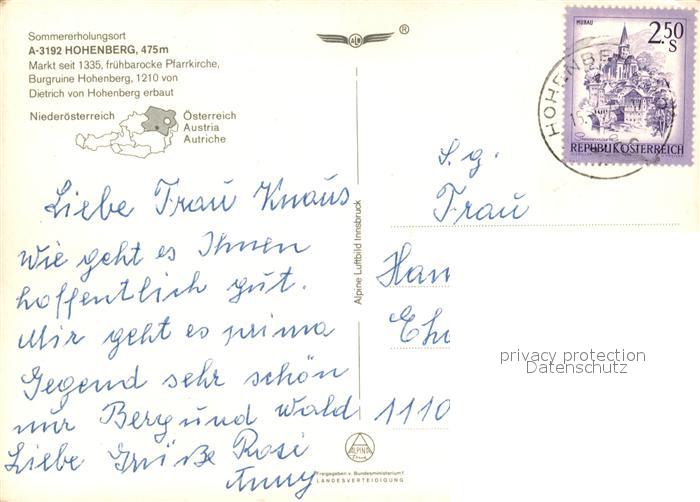 Sommererholungsort
A-3192 HOHENBERG, 475m
Markt seit 1335, frühbarocke Pfarrkirche,
Burgruine Hohenberg, 1210 von
Dietrich von Hohenberg erbaut
Niederösterreich
Österreich
Austria
Autriche
ALB
®
MURAU
2.50
S
REPUBLIK ÖSTERREICH
HOHENBE
S. g.
Frau
Han
Ehr
1110
Liebe Frau Knaus
wie geht es Ihnen
hoffentlich gut.
Mir geht es prima
Gegend sehr schön
nur Berg und Wald
Liebe Grüße Rosi
Anny
Alpine Luftbild Innsbruck
ALPINE
Freigegeben v. Bundesministerium f.
LANDESVERTEIDIGUNG
privacy protection
Datenschutz